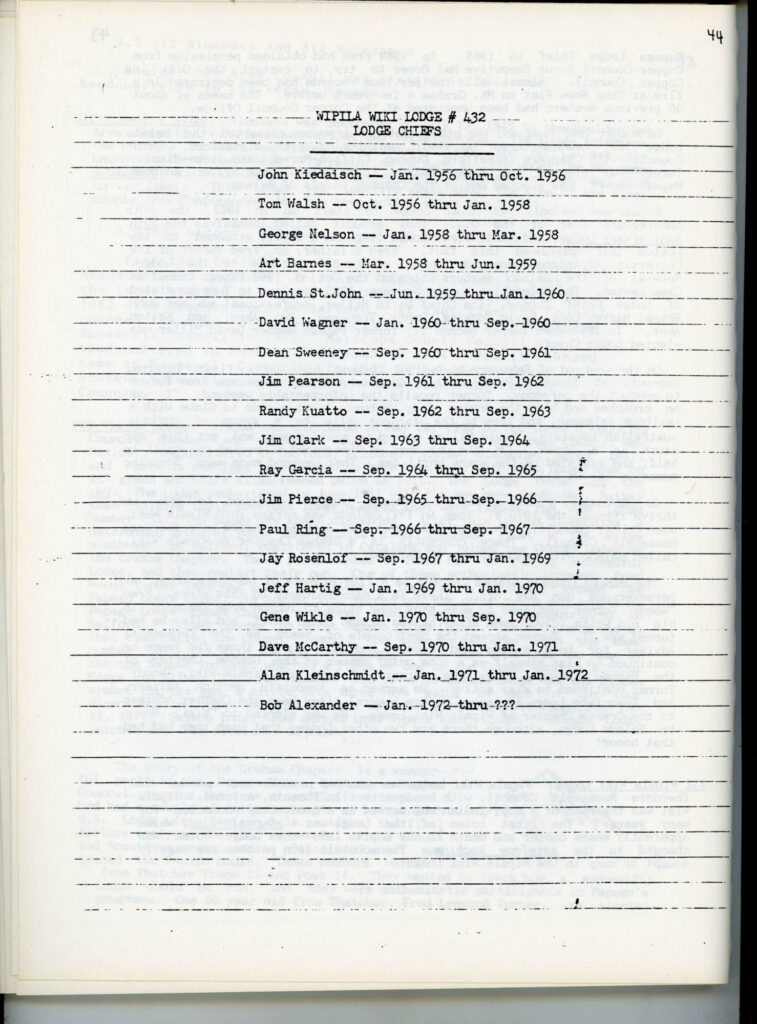 44
WIPILA WIKI LODGE # 432
LODGE CHIEFS
John Kiedaisch -- Jan. 1956 thru Oct. 1956
Tom Walsh -- Oct. 1956 thru Jan. 1958
George Nelson -- Jan. 1958 thru Mar. 1958
Art Barnes -- Mar. 1958 thru Jun. 1959
Dennis St.John -- Jun. 1959 thru Jan. 1960
David Wagner -- Jan. 1960 thru Sep. 1960
Dean Sweeney -- Sep. 1960 thru Sep. 1961
Jim Pearson -- Sep. 1961 thru Sep. 1962
Randy Kuatto -- Sep. 1962 thru Sep. 1963
Jim Clark -- Sep. 1963 thru Sep. 1964
Ray Garcia -- Sep. 1964 thru Sep. 1965
Jim Pierce -- Sep. 1965 thru Sep. 1966
Paul Ring -- Sep. 1966 thru Sep. 1967
Jay Rosenlof -- Sep. 1967 thru Jan. 1969
Jeff Hartig -- Jan. 1969 thru Jan. 1970
Gene Wikle -- Jan. 1970 thru Sep. 1970
Dave McCarthy -- Sep. 1970 thru Jan. 1971
Alan Kleinschmidt -- Jan. 1971 thru Jan. 1972
Bob Alexander -- Jan. 1972 thru ???